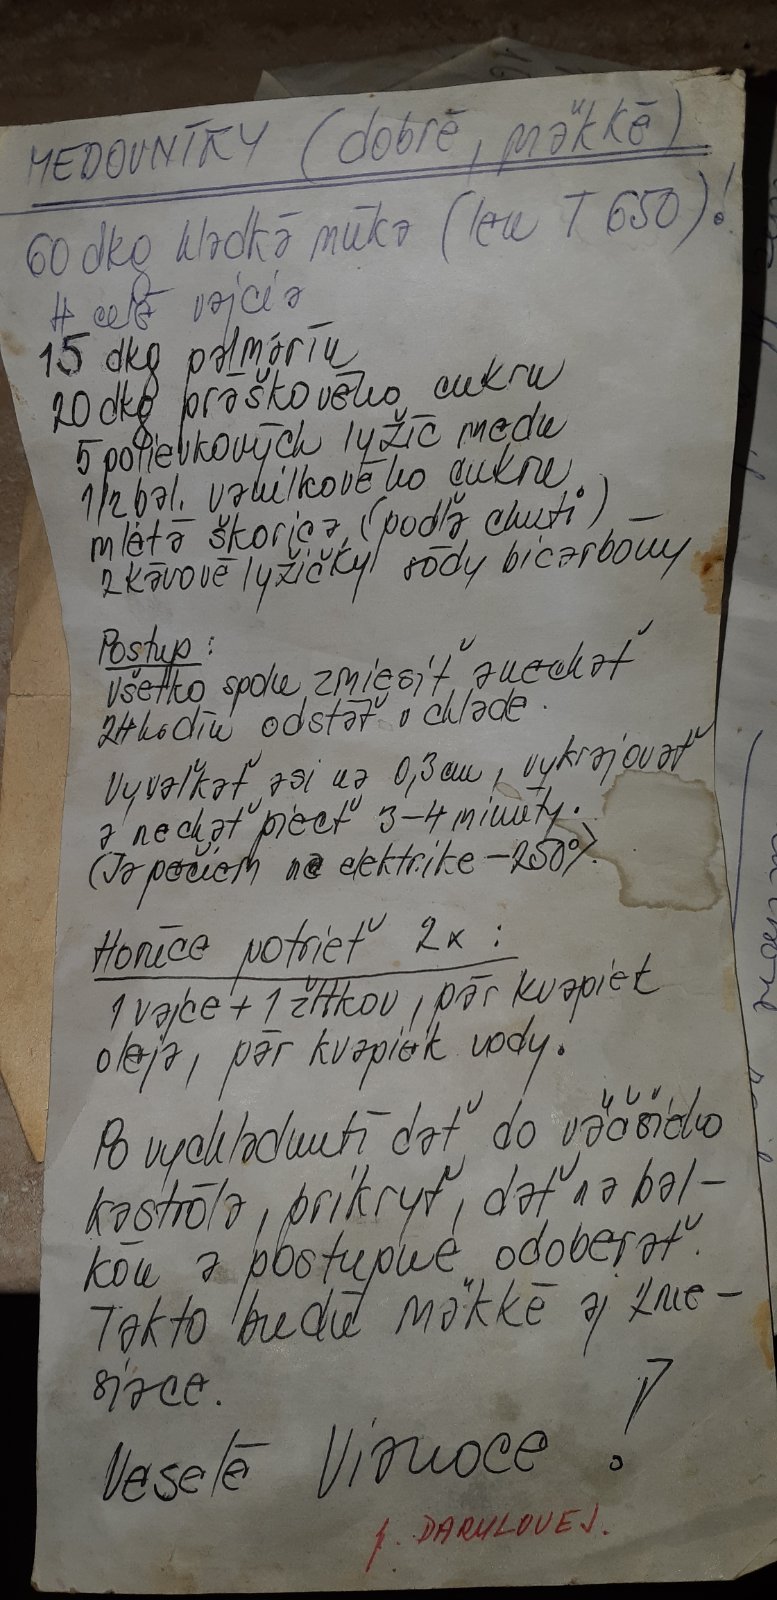 MEDOVNÍKY (dobré, mäkké)
60 dkg hladká múka (len T 650)!
4 celé vajcia
15 dkg palmarín
20 dkg práškového cukru
5 polievkových lyžíc medu
1/2 bal. vanilkového cukru
mletá škorica (podľa chuti)
2 kávové lyžičky sódy bicarbóny
Postup:
všetko spolu zmiesiť a nechať
24 hodín odstáť v chlade.
Vyvaľkať asi na 0,3 cm, vykrajovať
a nechať piecť 3-4 minúty.
(Ja pečiem na elektrike - 250°).
Horúce potrieť 2x:
1 vajce + 1 žĺtkov, pár kvapiek
oleja, pár kvapiek vody.
Po vychladnutí dať do väčšieho
kastróla, prikryť, dať na bal-
kón a postupne odoberať.
Takto budú mäkké aj 2 me-
siace.
Veselé Vianoce!
p. DARULOVEJ.